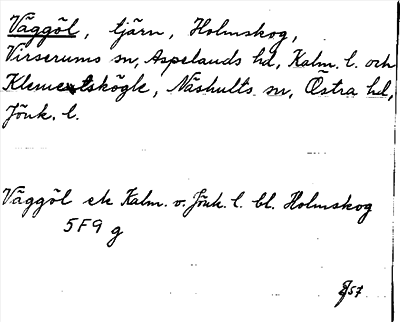 Väggöl, tjärn, Holmskog,
Virserums sn, Aspelands hd, Kalm. l. och
Klementskögle, Näshults sn, Östra hd,
Jönk. l.
Väggöl ek Kalm. o. Jönk. l. bl. Holmskog
5F9 g
57